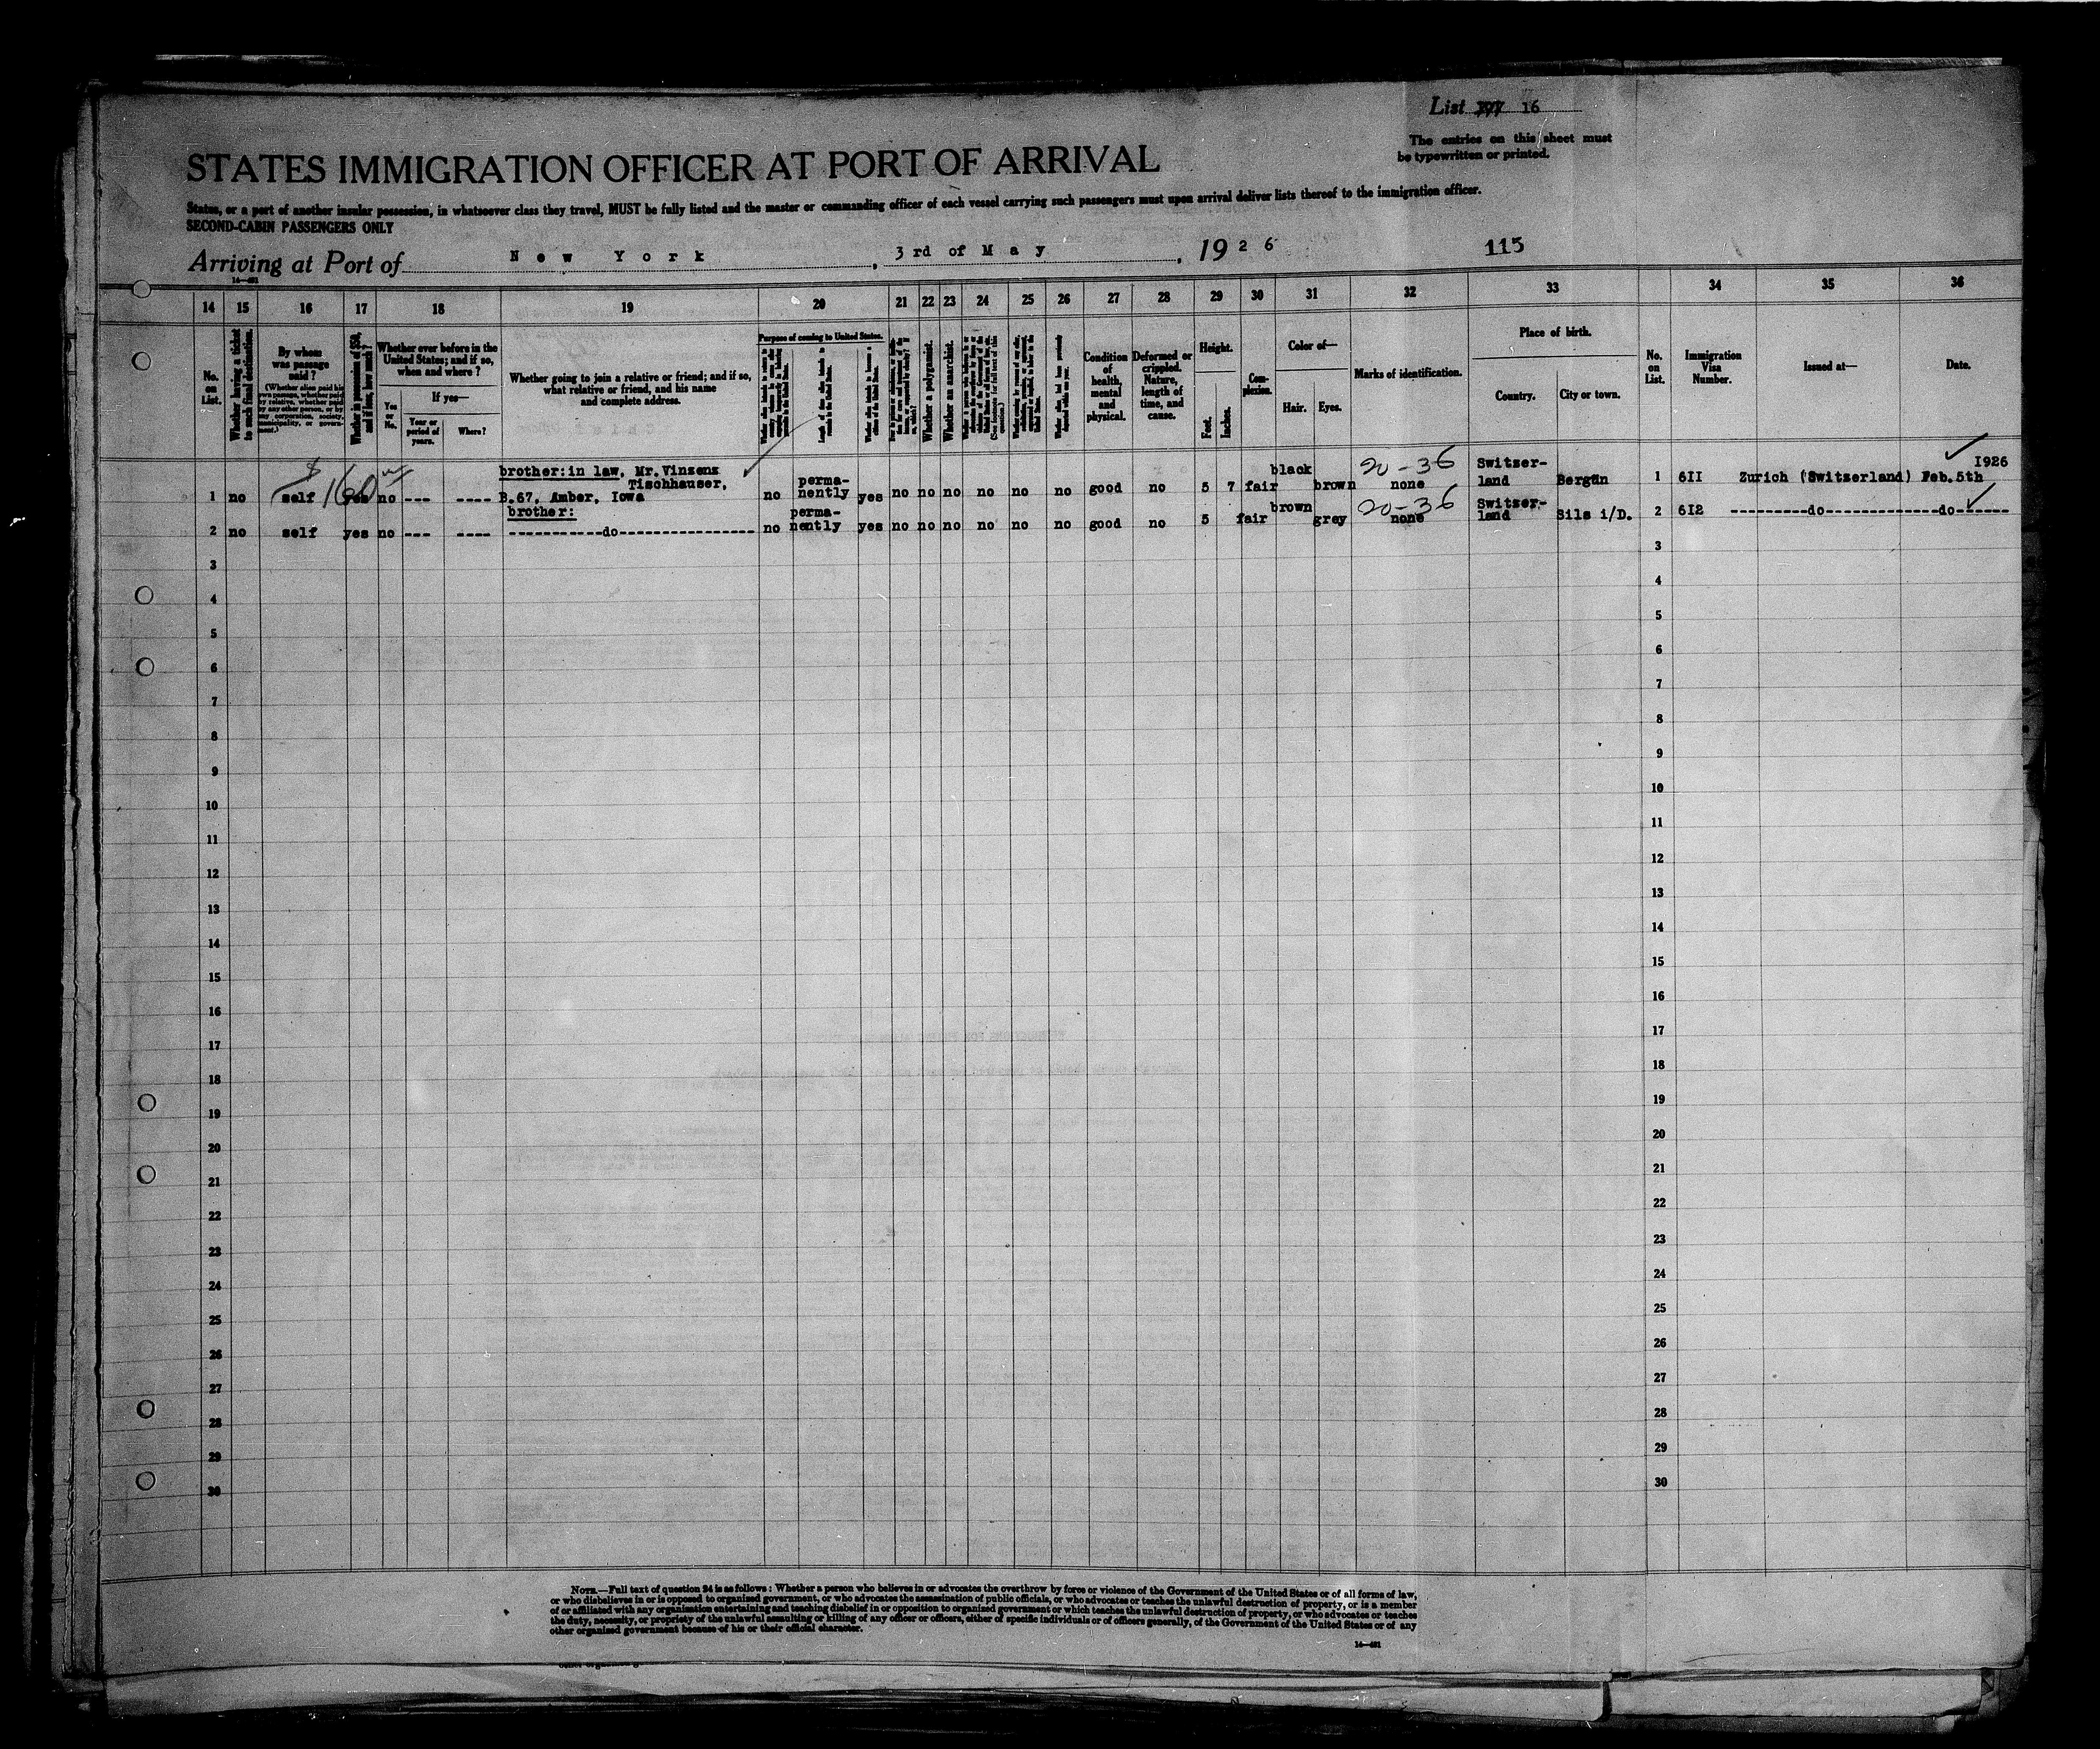 List 16
The entries on this sheet must
be typewritten or printed.
STATES IMMIGRATION OFFICER AT PORT OF ARRIVAL
States, or a port of another insular possession, in whatsoever class they travel, MUST be fully listed and the master or commanding officer of each vessel carrying such passengers must upon arrival deliver lists thereof to the immigration officer.
SECOND-CABIN PASSENGERS ONLY
Arriving at Port of New York, 3rd of May, 1926
115
14 15 16 17 18 19 20 21 22 23 24 25 26 27 28 29 30 31 32 33 34 35 36
No. on List.
Whether having a ticket to such final destination.
By whom was passage paid?
(Whether alien paid his own passage, whether paid by relative, whether paid by any other person, or by any corporation, society, municipality, or government.)
Whether in possession of $50, and if less, how much?
Whether ever before in the United States; and if so, when and where?
Yes or No.
If yes—
Year or period of years.
Where?
Whether going to join a relative or friend; and if so, what relative or friend, and his name and complete address.
Purpose of coming to United States.
Whether a polygamist.
Whether an anarchist.
Condition of health, mental and physical.
Deformed or crippled. Nature, length of time, and cause.
Height.
Feet.
Inches.
Complexion.
Color of—
Hair.
Eyes.
Marks of identification.
Place of birth.
Country.
City or town.
No. on List.
Immigration Visa Number.
Issued at—
Date.
$160
20-36
brother:in law, Mr. Vinzens
Tischhauser,
1 no self yes no --- ---- B.67, Amber, Iowa no perma-nently yes no no no no no no good no 5 7 fair black brown none Switzer-land Bergün 1 6II Zurich (Switzerland) Feb.5th 1926
brother:
20-36
2 no self yes no --- ---- -----------do---------------- no perma-nently yes no no no no no no good no 5 fair brown grey none Switzer-land Sils i/D. 2 6I2 ---------do-------------do------
3 3
4 4
5 5
6 6
7 7
8 8
9 9
10 10
11 11
12 12
13 13
14 14
15 15
16 16
17 17
18 18
19 19
20 20
21 21
22 22
23 23
24 24
25 25
26 26
27 27
28 28
29 29
30 30
NOTE.—Full text of question 24 is as follows: Whether a person who believes in or advocates the overthrow by force or violence of the Government of the United States or of all forms of law,
or who disbelieves in or is opposed to organized government, or who advocates the assassination of public officials, or who advocates or teaches the unlawful destruction of property, or is a member
of or affiliated with any organization entertaining and teaching disbelief in or opposition to organized government or which teaches the unlawful destruction of property, or who advocates or teaches
the duty, necessity, or propriety of the unlawful assaulting or killing of any officer or officers, either of specific individuals or of officers generally, of the Government of the United States or of any
other organized government because of his or their official character.
14—491